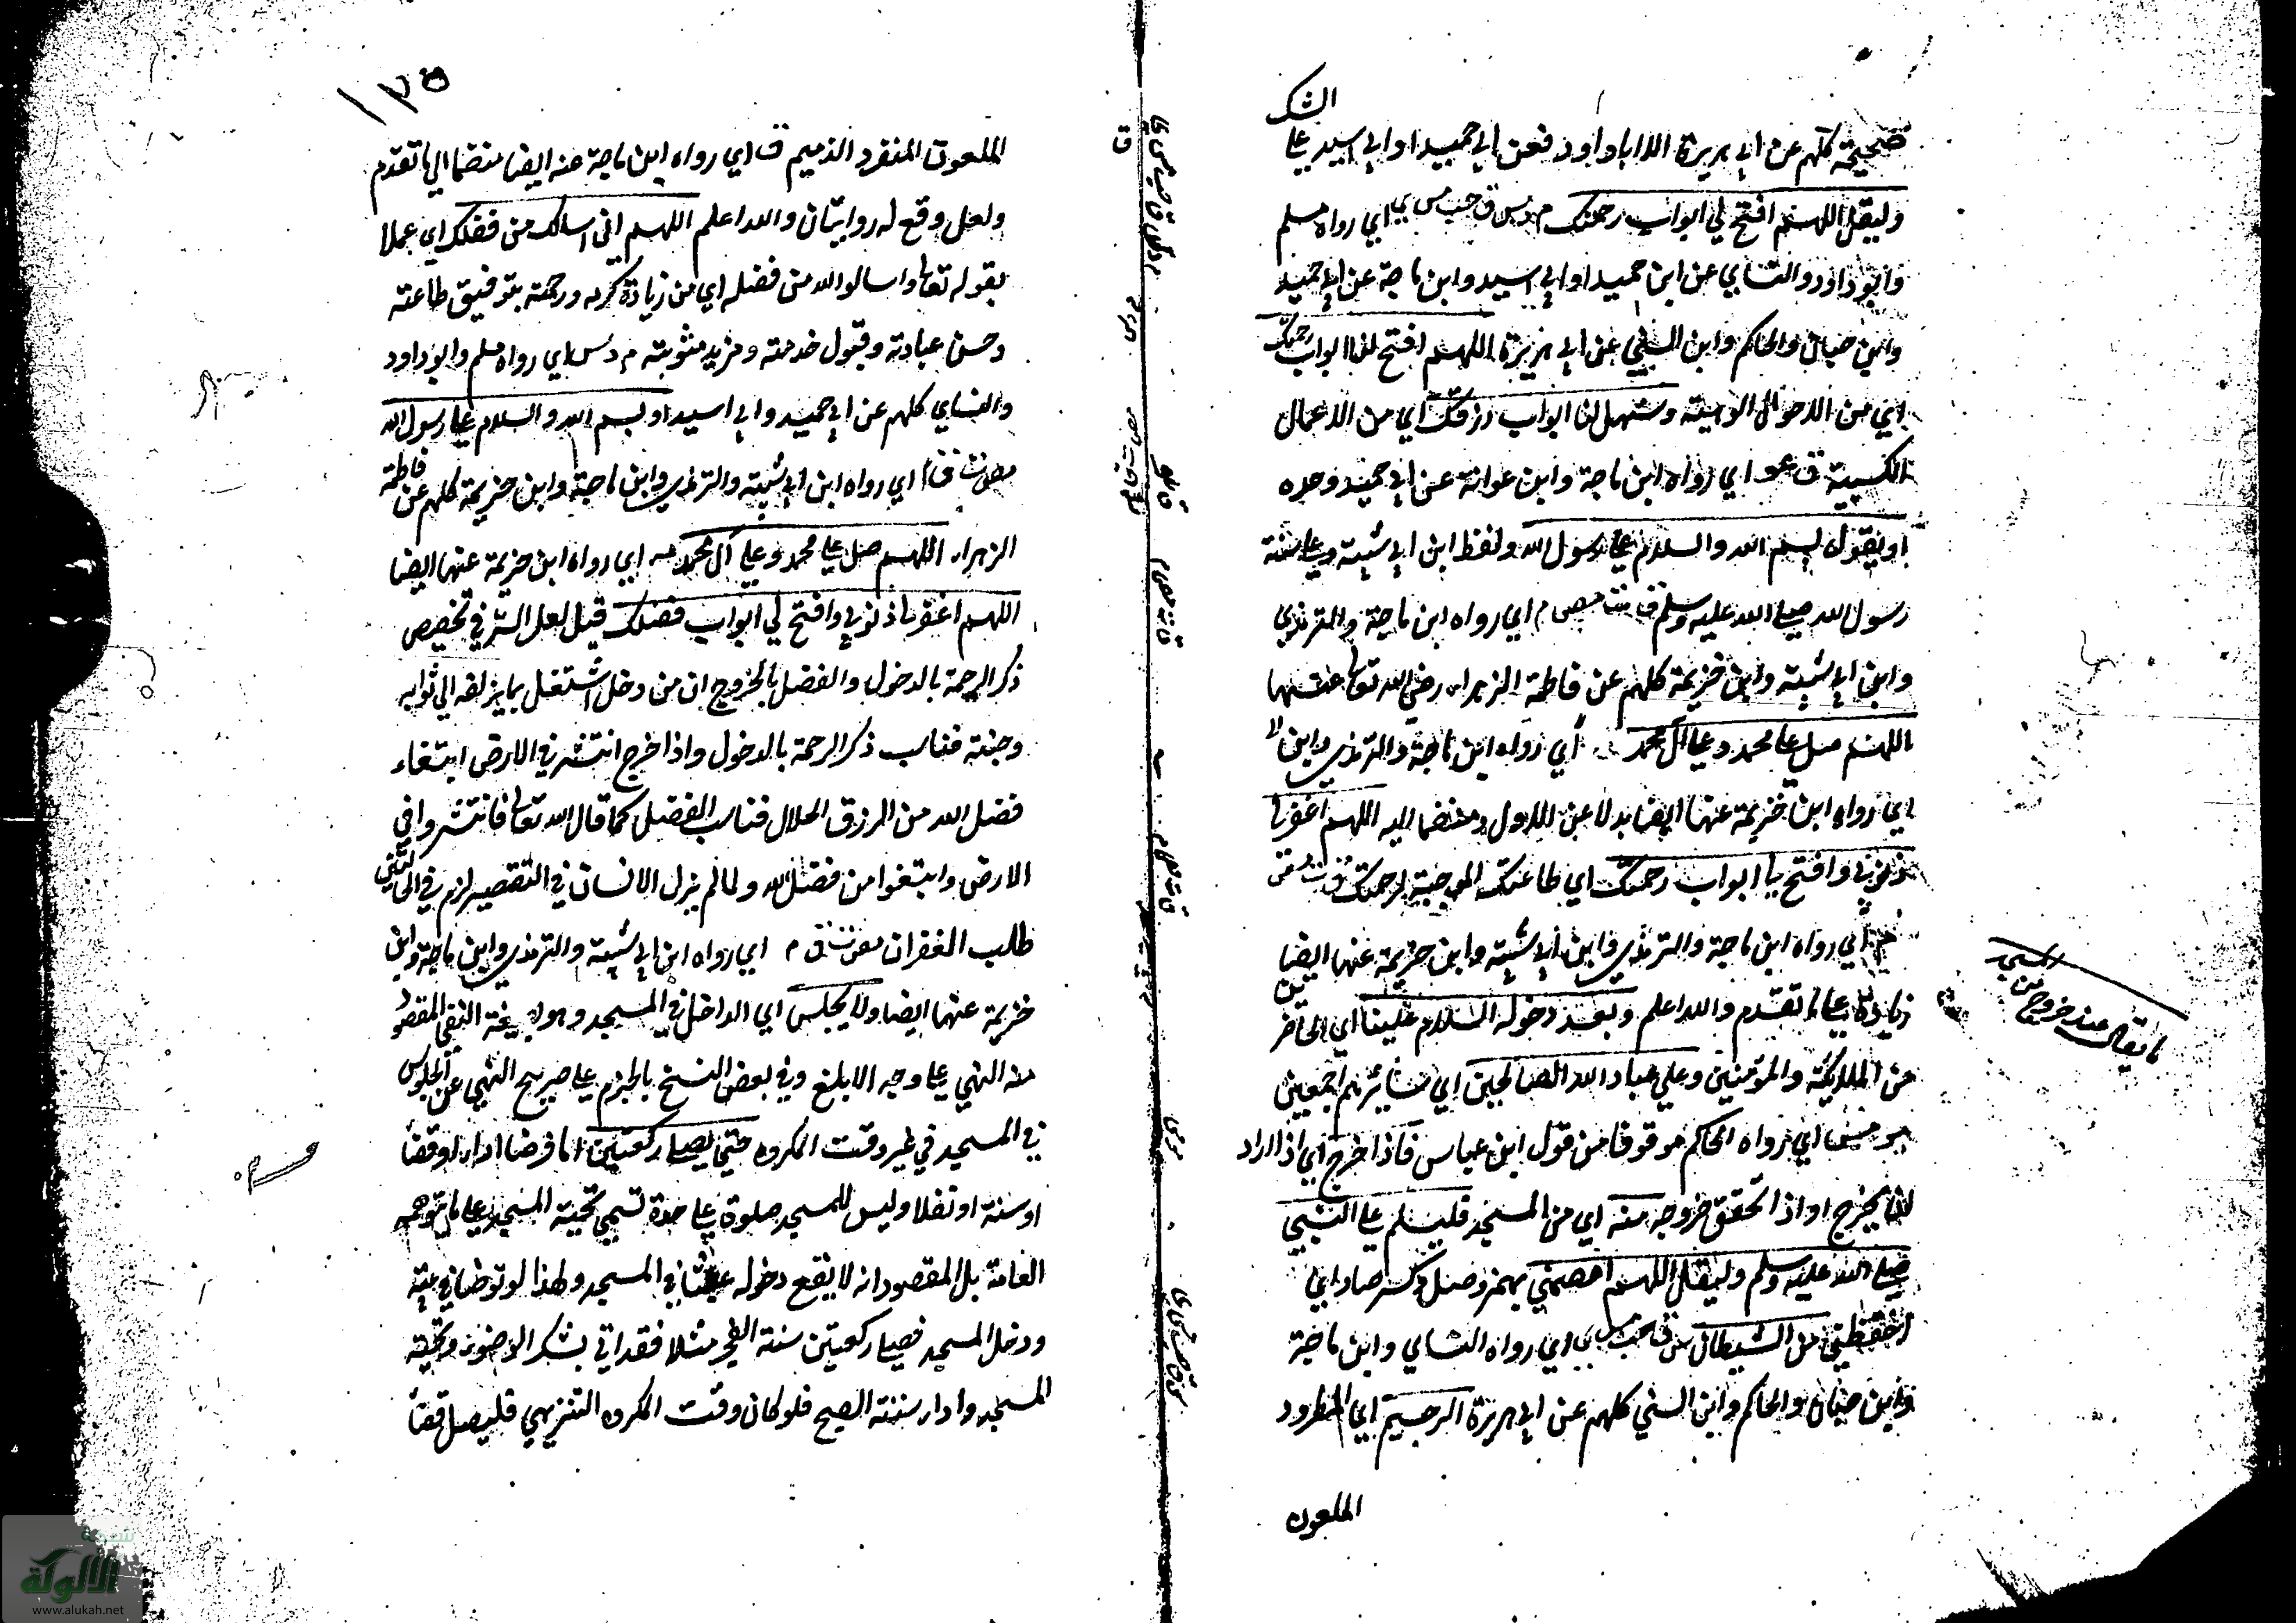 الشك
صحيحة كلهم عن ابي هريرة الا ابا داود فعن ابي حميد او ابي اسيد علي
وليقل اللهم افتح لي ابواب رحمتك م د س ق حب مس ي اي رواه مسلم
وابو داود والنساي عن ابن حميد او ابي اسيد وابن ماجة عن ابي حميد
وابن حبان والحاكم وابن السني عن ابي هريرة اللهم افتح لنا ابواب رحمتك
اي من الاحوال الوهبية وسهل لنا ابواب رزقك اي من الاعمال
الكسبية ق عو اي رواه ابن ماجة وابن عوانة عن ابي حميد وحده
او يقول بسم الله والسلام علي رسول الله ولفظ ابن ابي شيبة وعلي سنة
رسول الله صلي الله عليه وسلم ق ت مص م اي رواه ابن ماجة والترمذي
وابن ابي شيبة وابن خزيمة كلهم عن فاطمة الزهراء رضي الله تعالي عنها
اللهم صل علي محمد وعلي آل محمد اي رواه ابن ماجة والترمذي وابن
اي رواه ابن خزيمة عنها ايضا بدلا عن الاول ومنضما اليه اللهم اغفر لي
ذنوبي وافتح لي ابواب رحمتك اي طاعتك الموجبة لرحمتك ق ت مص
اي رواه ابن ماجة والترمذي وابن ابي شيبة وابن خزيمة عنها ايضا
علي ما تقدم والله اعلم وبعد دخوله السلام علينا اي الحاضرين
من الملائكة والمؤمنين وعلي عباد الله الصالحين اي سائرهم اجمعين
مو مس اي رواه الحاكم موقوفا من قول ابن عباس فاذا خرج اي اذا اراد
ان يخرج او اذا تحقق خروجه منه اي من المسجد فليسلم علي النبي
صلي الله عليه وسلم وليقل اللهم اعصمني بهمز وصل وكسر صاد اي
احفظني من الشيطان س ق حب مس ي اي رواه النساي وابن ماجة
وابن حبان والحاكم وابن السني كلهم عن ابي هريرة الرجيم اي المطرود
الملعون
ما يقال عند خروج من المسجد
١٣٥
الملعون المنفرد الذميم ق اي رواه ابن ماجة عنه ايضا منضما الي ما تقدم
ولعل وقع له روايتان والله اعلم اللهم اني اسالك من فضلك اي عملا
بقوله تعالي واسالوا الله من فضله اي من زيادة كرمه ورحمته بتوفيق طاعته
وحسن عبادته وقبول خدمته ومزيد مثوبته م د س اي رواه مسلم وابو داود
والنساي كلهم عن ابي حميد وابي اسيد او بسم الله والسلام علي رسول الله
مص ت ق م اي رواه ابن ابي شيبة والترمذي وابن ماجة وابن خزيمة كلهم عن فاطمة
الزهراء اللهم صل علي محمد وعلي آل محمد مه اي رواه ابن خزيمة عنها ايضا
اللهم اغفر لي ذنوبي وافتح لي ابواب فضلك قيل لعل السر في تخصيص
ذكر الرحمة بالدخول والفضل بالخروج ان من دخل اشتغل بما يزلفه الي ثوابه
وجنته فناسب ذكر الرحمة بالدخول واذا خرج انتشر في الارض ابتغاء
فضل الله من الرزق الحلال فناسب الفضل كما قال الله تعالي فانتشروا في
الارض وابتغوا من فضل الله ولما لم يزل الانسان في التقصير لزم في الحالتين
طلب الغفران مص ت ق م اي رواه ابن ابي شيبة والترمذي وابن ماجة وابن
خزيمة عنها ايضا ولا يجلس اي الداخل في المسجد وهو بصيغة النفي المقصود
منه النهي علي وجه الابلغ وفي بعض النسخ بالجزم علي صريح النهي عن الجلوس
في المسجد في غير وقت المكروه حتي يصلي ركعتين اما فرضا اداء او قضاء
او سنة او نفلا وليس للمسجد صلوة علي حدة تسمي تحية المسجد علي ما يتوهمه
العامة بل المقصود انه لا يقع دخوله عبثا في المسجد ولهذا لو توضا في بيته
ودخل المسجد فصلي ركعتين سنة الفجر مثلا فقد اتي بشكر الوضوء وتحية
المسجد واداء سنة الصبح فلو كان وقت المكروه التنزيهي فليصل قضاء